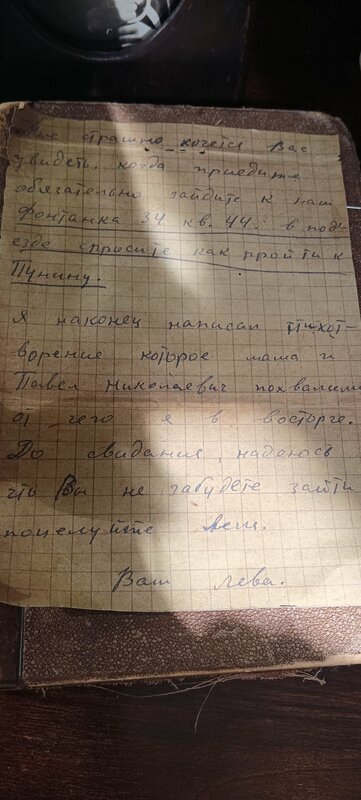 Мне страшно хочется Вас
увидеть, когда приедите
обязательно зайдите к нам
Фонтанка 34 кв. 44. в подъ-
езде спросите как пройти к
Пунину.
Я наконец написал стихот-
ворение которое мама и
Павел Николаевич похвалили
от чего я в восторге.
До свидания, надеюсь
что Вы не забудете зайти
поцелуйте
Ваш Лева.